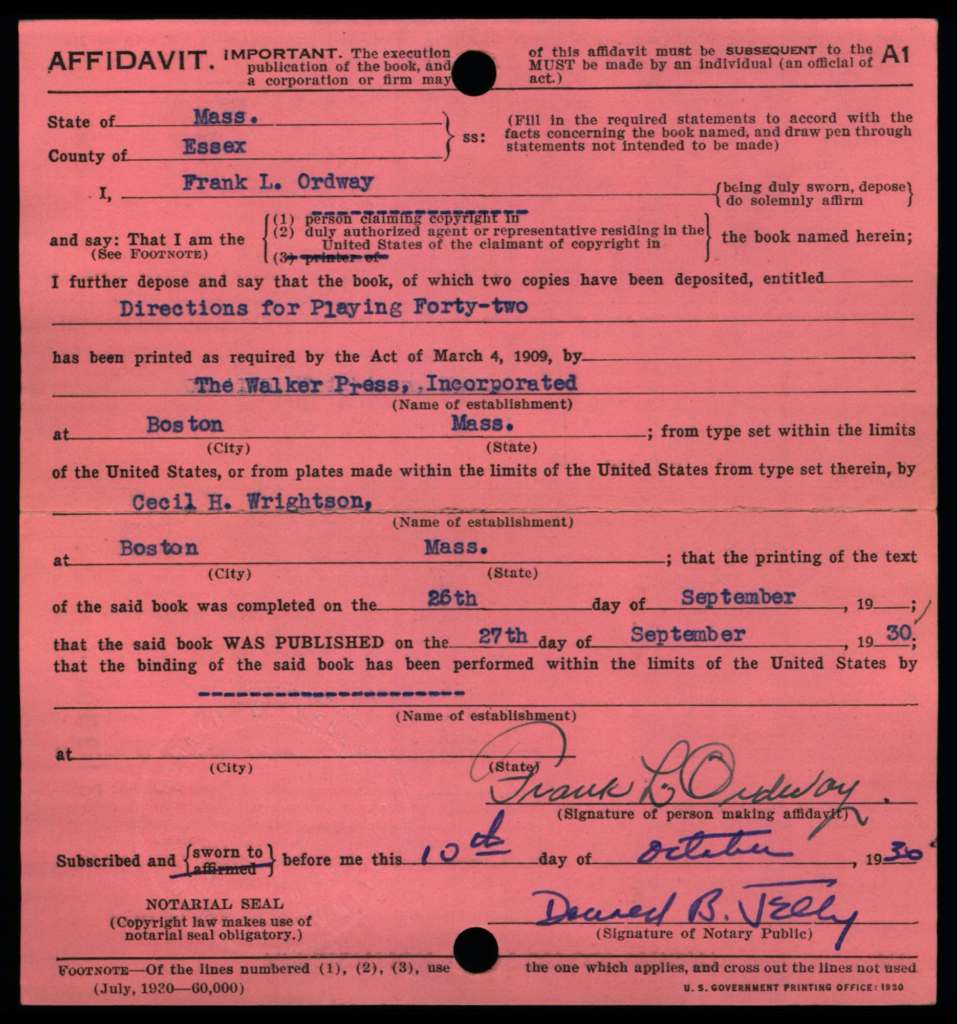 AFFIDAVIT. IMPORTANT. The execution of this affidavit must be SUBSEQUENT to the A1
publication of the book, and MUST be made by an individual (an official of
a corporation or firm may act.)
State of Mass. (Fill in the required statements to accord with the
ss: facts concerning the book named, and draw pen through
County of Essex statements not intended to be made)
I, Frank L. Ordway {being duly sworn, depose}
{do solemnly affirm}
(1) person claiming copyright in
and say: That I am the (2) duly authorized agent or representative residing in the the book named herein;
(See FOOTNOTE) United States of the claimant of copyright in
(3) printer of
I further depose and say that the book, of which two copies have been deposited, entitled
Directions for Playing Forty-two
has been printed as required by the Act of March 4, 1909, by
The Walker Press, Incorporated
(Name of establishment)
at Boston Mass. ; from type set within the limits
(City) (State)
of the United States, or from plates made within the limits of the United States from type set therein, by
Cecil H. Wrightson,
(Name of establishment)
at Boston Mass. ; that the printing of the text
(City) (State)
of the said book was completed on the 26th day of September, 19 ;
that the said book WAS PUBLISHED on the 27th day of September, 19 30;
that the binding of the said book has been performed within the limits of the United States by
(Name of establishment)
at
(City) (State)
Frank L Ordway.
(Signature of person making affidavit)
Subscribed and {sworn to / affirmed} before me this 10th day of October, 1930
NOTARIAL SEAL
(Copyright law makes use of
notarial seal obligatory.)
B. Jelly
(Signature of Notary Public)
FOOTNOTE—Of the lines numbered (1), (2), (3), use the one which applies, and cross out the lines not used
(July, 1920—60,000) U. S. GOVERNMENT PRINTING OFFICE: 1930